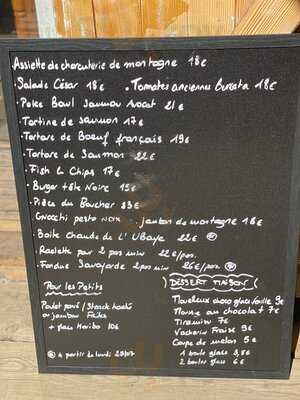 Assiette de charcuterie de montagne 18€
Salade César 18€ . Tomates anciennes Burrata 18€
. Poke Bowl Saumon Avocat 21€
. Tartine de saumon 17€
. Tartare de Boeuf français 19€
. Tartare de Saumon 22€
. Fish & Chips 17€
. Burger tête Noire 19€
. Pièce du Boucher 23€
. Gnocchi pesto NOIX . jambon de montagne 18€
. Boite chaude de L'UBaye 22€
. Raclette pour 2 pers min 22€/pers.
. Fondue Savoyarde 2 pers min 26€/pers.
Pour Les Petits
DESSERT MAISON
Poulet pané / Steack haché
ou jambon Frites
+ glace Haribo 10€
Moelleux choco glace Vanille 9€
Mousse au chocolat 7€
Tiramisu 7€
Vacherin Fraise 9€
Coupe de melon 5€
1 boule glace 3,5€
2 boules glace 6€
à partir de lundi